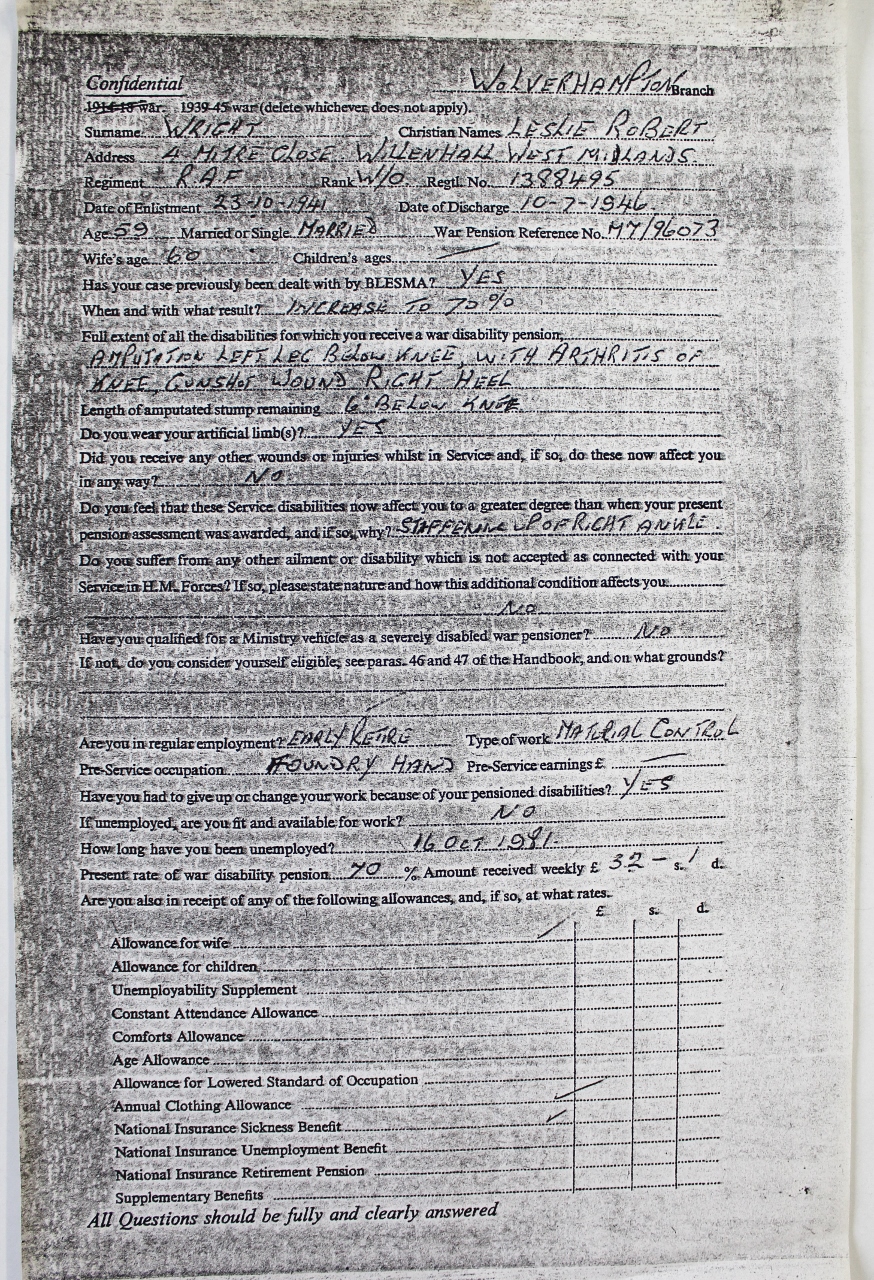 Confidential WOLVERHAMPTON Branch
1914-18 war. 1939-45 war (delete whichever does not apply).
Surname WRIGHT Christian Names LESLIE ROBERT
Address 4 MITRE CLOSE WILLENHALL WEST MIDLANDS
Regiment R.A.F Rank W/O Regtl. No. 1388495
Date of Enlistment 23-10-1941 Date of Discharge 10-7-1946
Age 59 Married or Single MARRIED War Pension Reference No. M7/96073
Wife's age 60 Children's ages
Has your case previously been dealt with by BLESMA? YES
When and with what result? INCREASE TO 70%
Full extent of all the disabilities for which you receive a war disability pension
AMPUTATION LEFT LEG BELOW KNEE, WITH ARTHRITIS OF
KNEE, GUNSHOT WOUND RIGHT HEEL
Length of amputated stump remaining 6" BELOW KNEE
Do you wear your artificial limb(s)? YES
Did you receive any other wounds or injuries whilst in Service and, if so, do these now affect you
in any way? NO
Do you feel that these Service disabilities now affect you to a greater degree than when your present
pension assessment was awarded, and if so, why? STAFFENING UP OF RIGHT ANKLE.
Do you suffer from any other ailment or disability which is not accepted as connected with your
Service in H.M. Forces? If so, please state nature and how this additional condition affects you
NO
Have you qualified for a Ministry vehicle as a severely disabled war pensioner? NO
If not, do you consider yourself eligible; see paras. 46 and 47 of the Handbook, and on what grounds?
Are you in regular employment? EARLY RETIRE Type of work MATERIAL CONTROL
Pre-Service occupation FOUNDRY HAND Pre-Service earnings £
Have you had to give up or change your work because of your pensioned disabilities? YES
If unemployed, are you fit and available for work? NO
How long have you been unemployed? 16 OCT 1981
Present rate of war disability pension 70 % Amount received weekly £ 32 - s. d.
Are you also in receipt of any of the following allowances, and, if so, at what rates.
£ s. d.
Allowance for wife
Allowance for children
Unemployability Supplement
Constant Attendance Allowance
Comforts Allowance
Age Allowance
Allowance for Lowered Standard of Occupation
Annual Clothing Allowance
National Insurance Sickness Benefit
National Insurance Unemployment Benefit
National Insurance Retirement Pension
Supplementary Benefits
All Questions should be fully and clearly answered